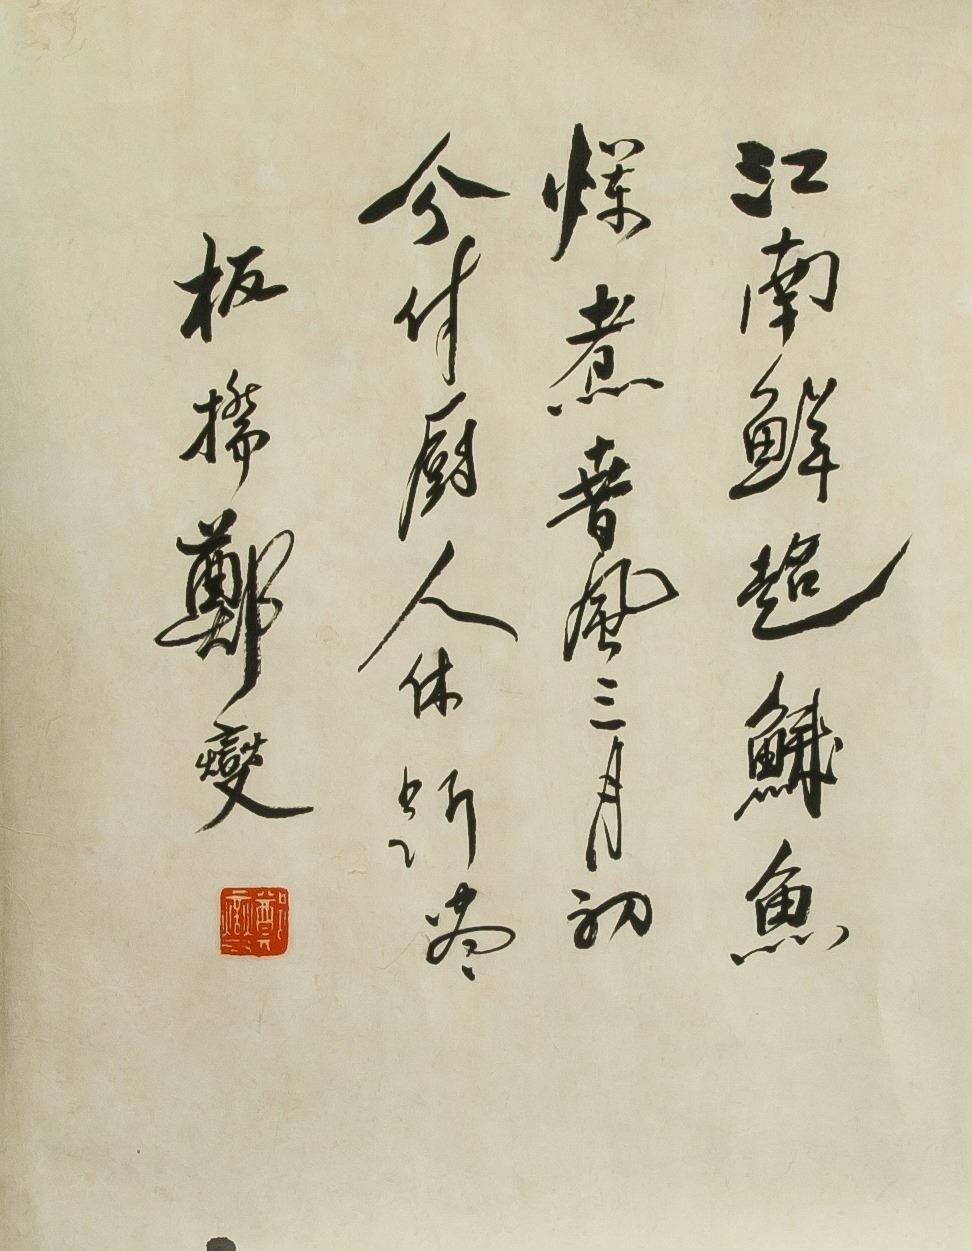 江南鮮超魚
爛煮春風三月初
分付厨人休斫盡
板橋鄭燮